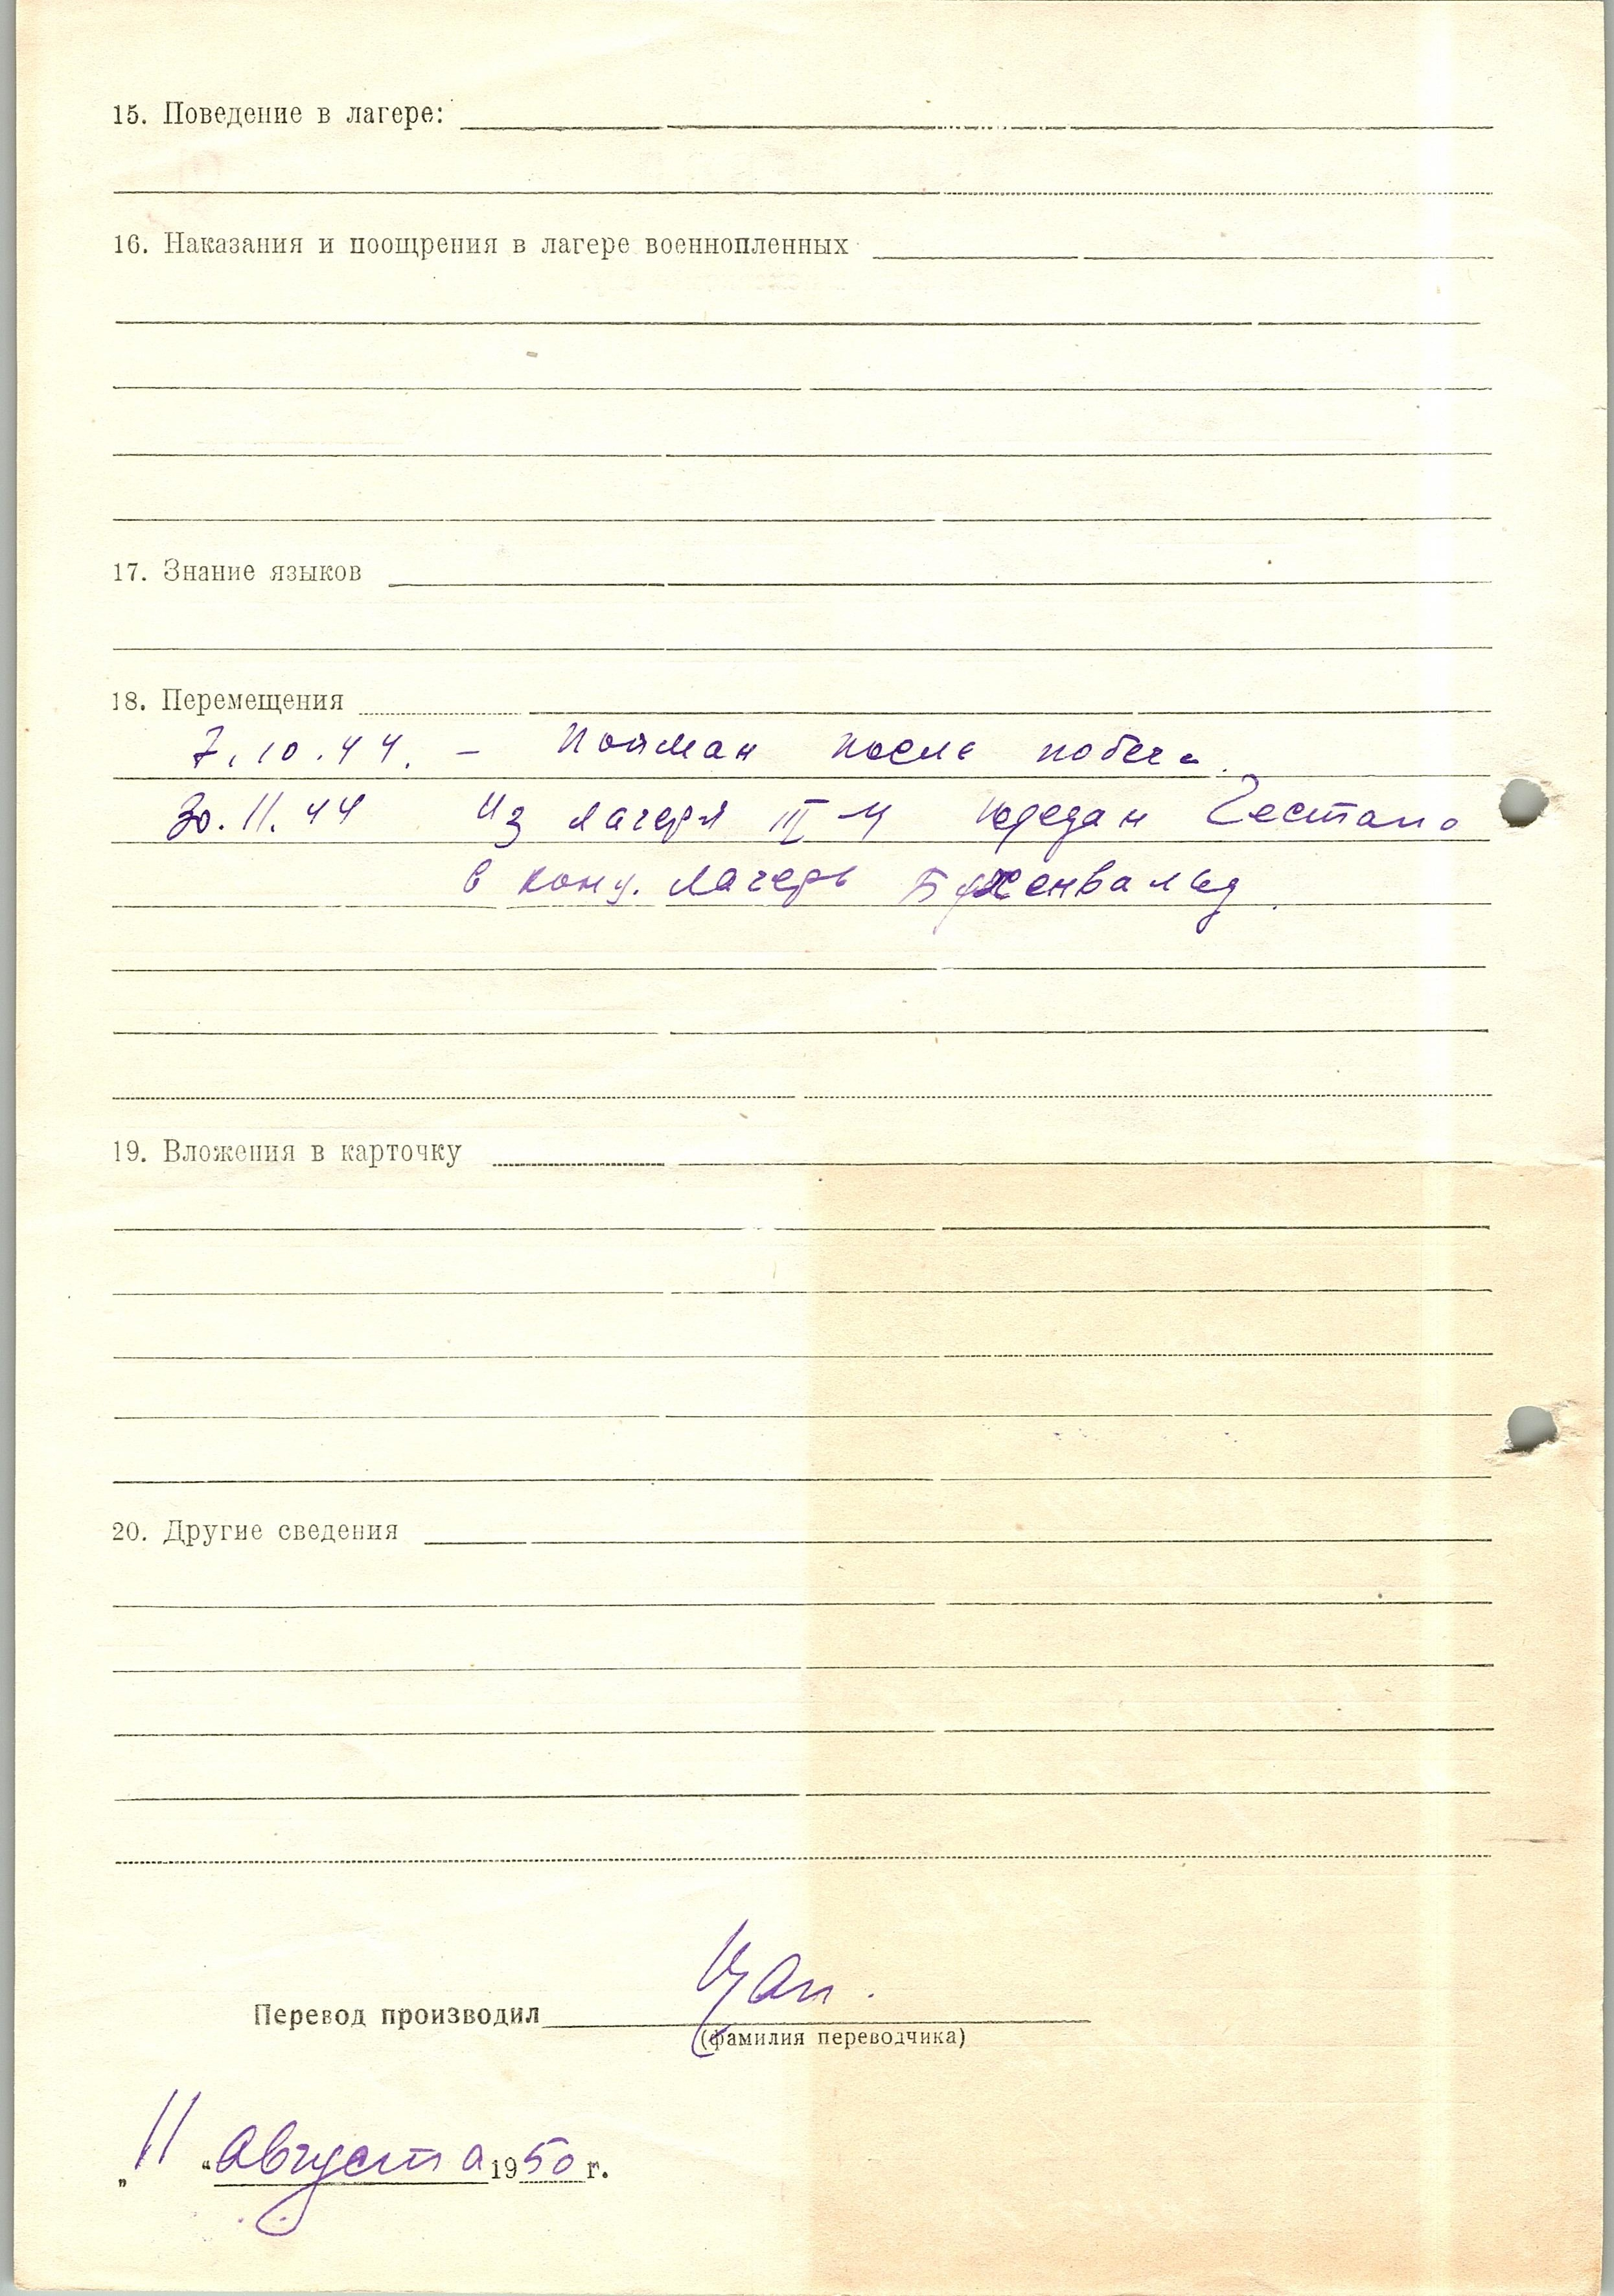 15. Поведение в лагере:
16. Наказания и поощрения в лагере военнопленных
17. Знание языков
18. Перемещения
7.10.44. – Пойман после побега.
30.11.44 Из лагеря III-Ц передан Гестапо
в конц. лагерь Бухенвальд.
19. Вложения в карточку
20. Другие сведения
Перевод производил
(фамилия переводчика)
„11“ августа 1950 г.